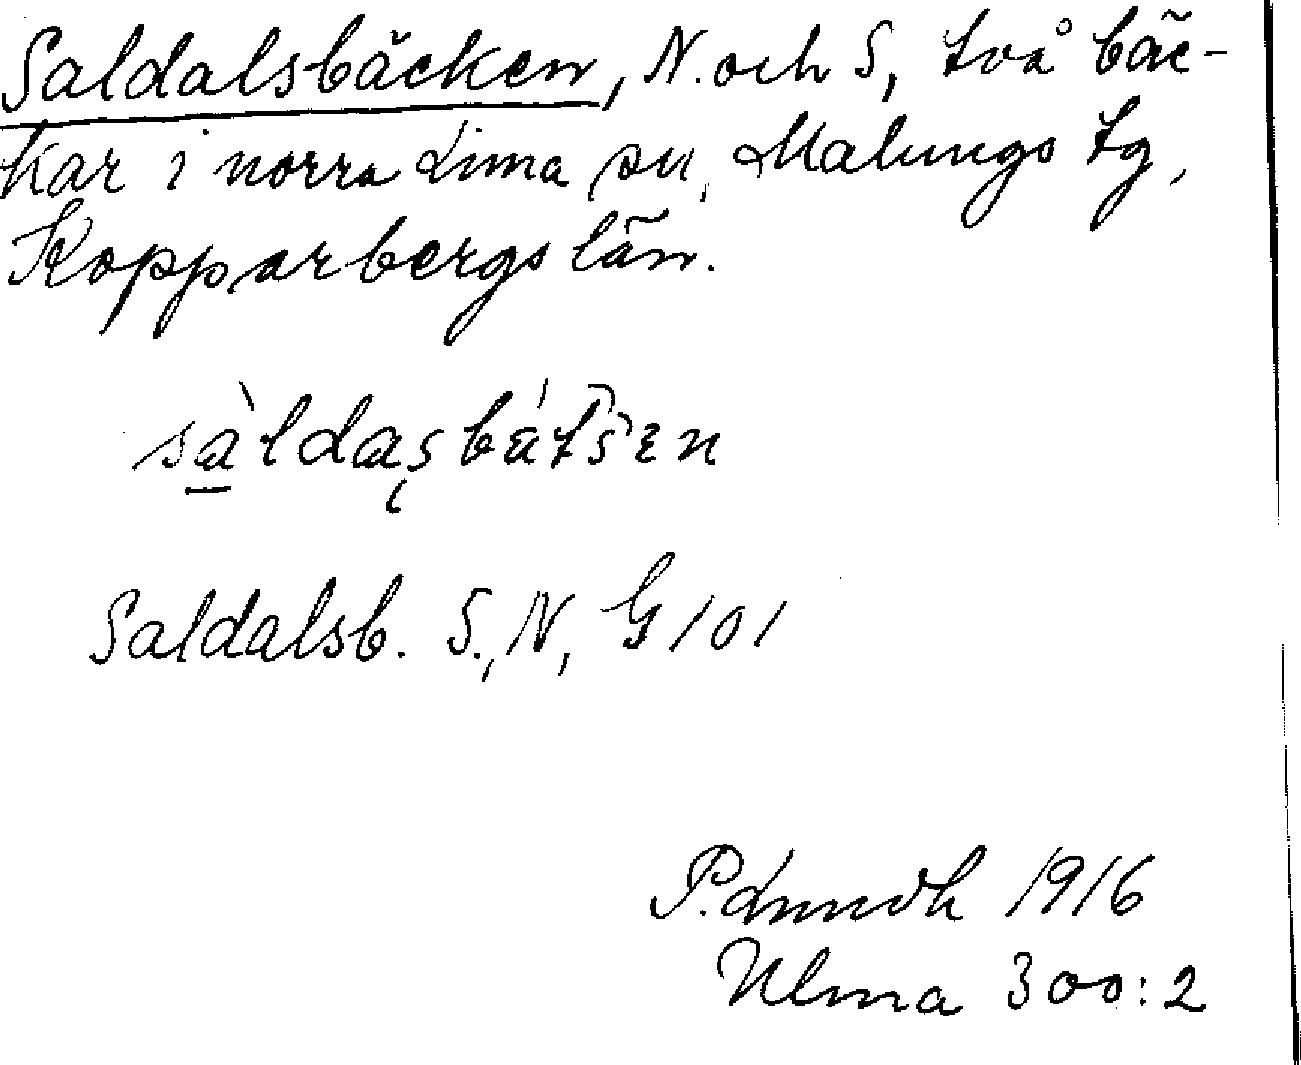 Saldalsbäcken, N. och S, två bäc-
kar i norra Lima sn, Malungs tg,
Kopparbergs län.
sàldasbátšen
Saldalsb. S., N, G 101
P. Lindh 1916
Ulma 300:2